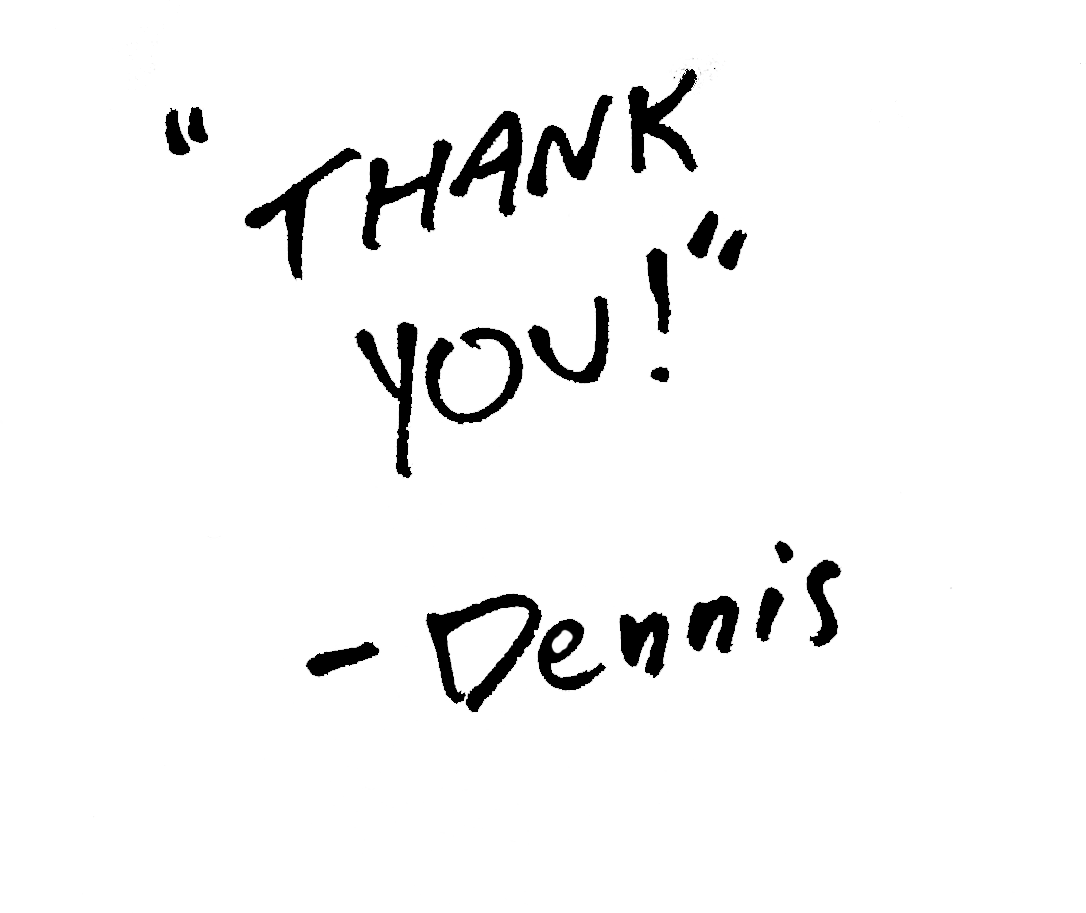 "THANK
YOU!"
-Dennis